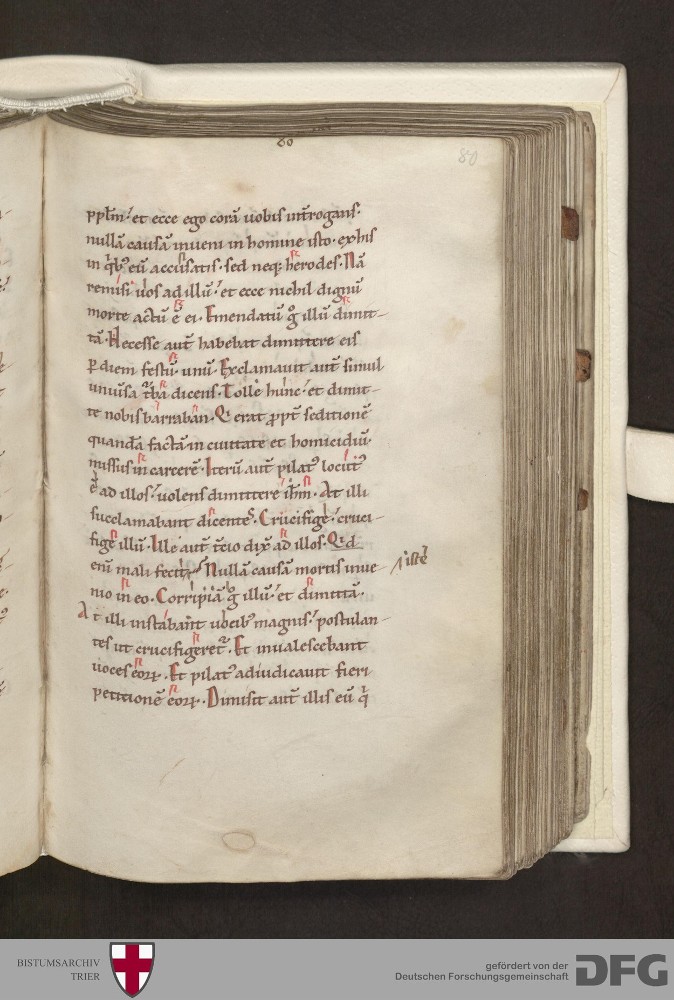 80
80
ppłm ⁊ et ecce ego corā uobis int̄rogans.
nullā causā inueni in homine isto. ex his
in q̄b; eū accusatis. sed neq; herodes. Nā
remisi uos ad illū ⁊ et ecce nichil dignū
morte actū ē ei. Emendatū g̊ illū dimit-
tā. Necesse aut̄ habebat dimittere eis
ꝑ diem festū unū. Exclamauit aut̄ simul
uniu̅sa t̄ba dicens. Tolle hunc ⁊ et dimit-
te nobis barraban. Q̇ erat ꝓpt̄ seditionē
quandā factā in ciuitate et homicidiū
missus in carcerē. Iterū aut̄ pilat᷒ locut᷒
ē ad illos ⁊ uolens dimittere ih̄m. At illi
succlamabant dicentes. Crucifige ⁊ cruci-
fige illū. Ille aut̄ t̄cio dix̄ ad illos. Qid
enī mali fecit iste
Nullā causā mortis inue-
nio in eo. Corripiā g̊ illū ⁊ et dimittā.
At illi instabant uocib᷒ magnis ⁊ postulan-
tes ut crucifigeret᷑. Et inualescebant
uoces eoꝝ. Et pilat᷒ adiudicauit fieri
petitionē eoꝝ. Dimisit aut̄ illis eū q̇
BISTUMSARCHIV
TRIER
gefördert von der
Deutschen Forschungsgemeinschaft
DFG